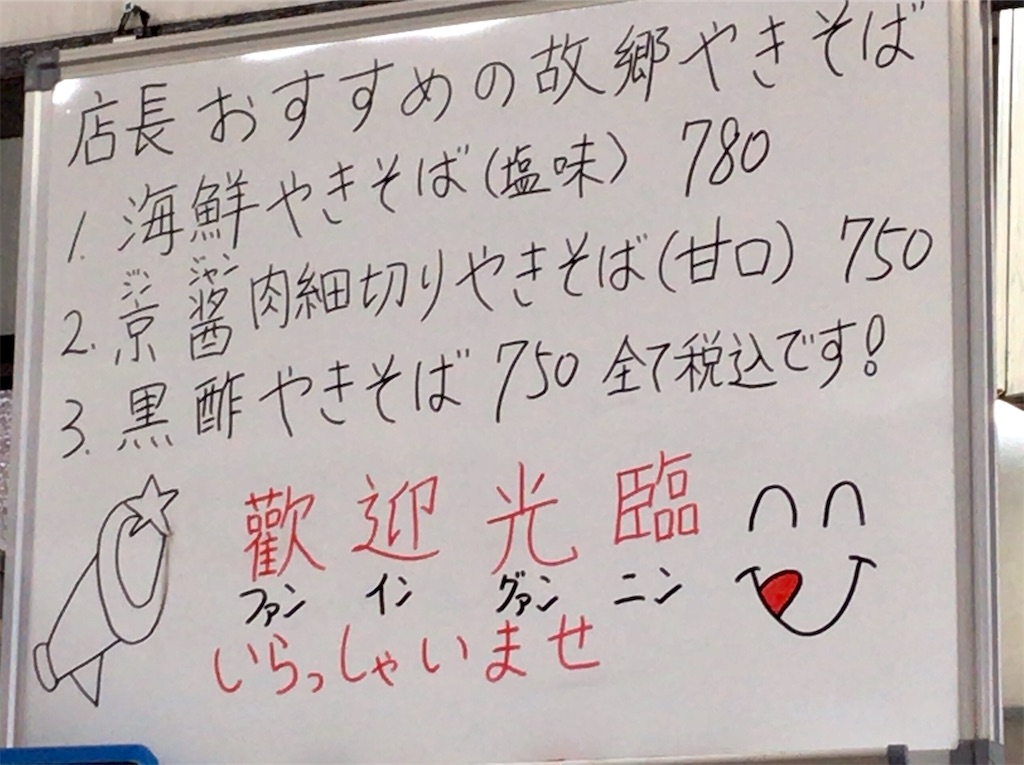 店長おすすめの故郷やきそば
1. 海鮮やきそば(塩味) 780
ジン ジャン
2. 京醤肉細切りやきそば(甘口) 750
3. 黒酢やきそば 750 全て税込です!
歡迎光臨
ファン イン グァン ニン
いらっしゃいませ